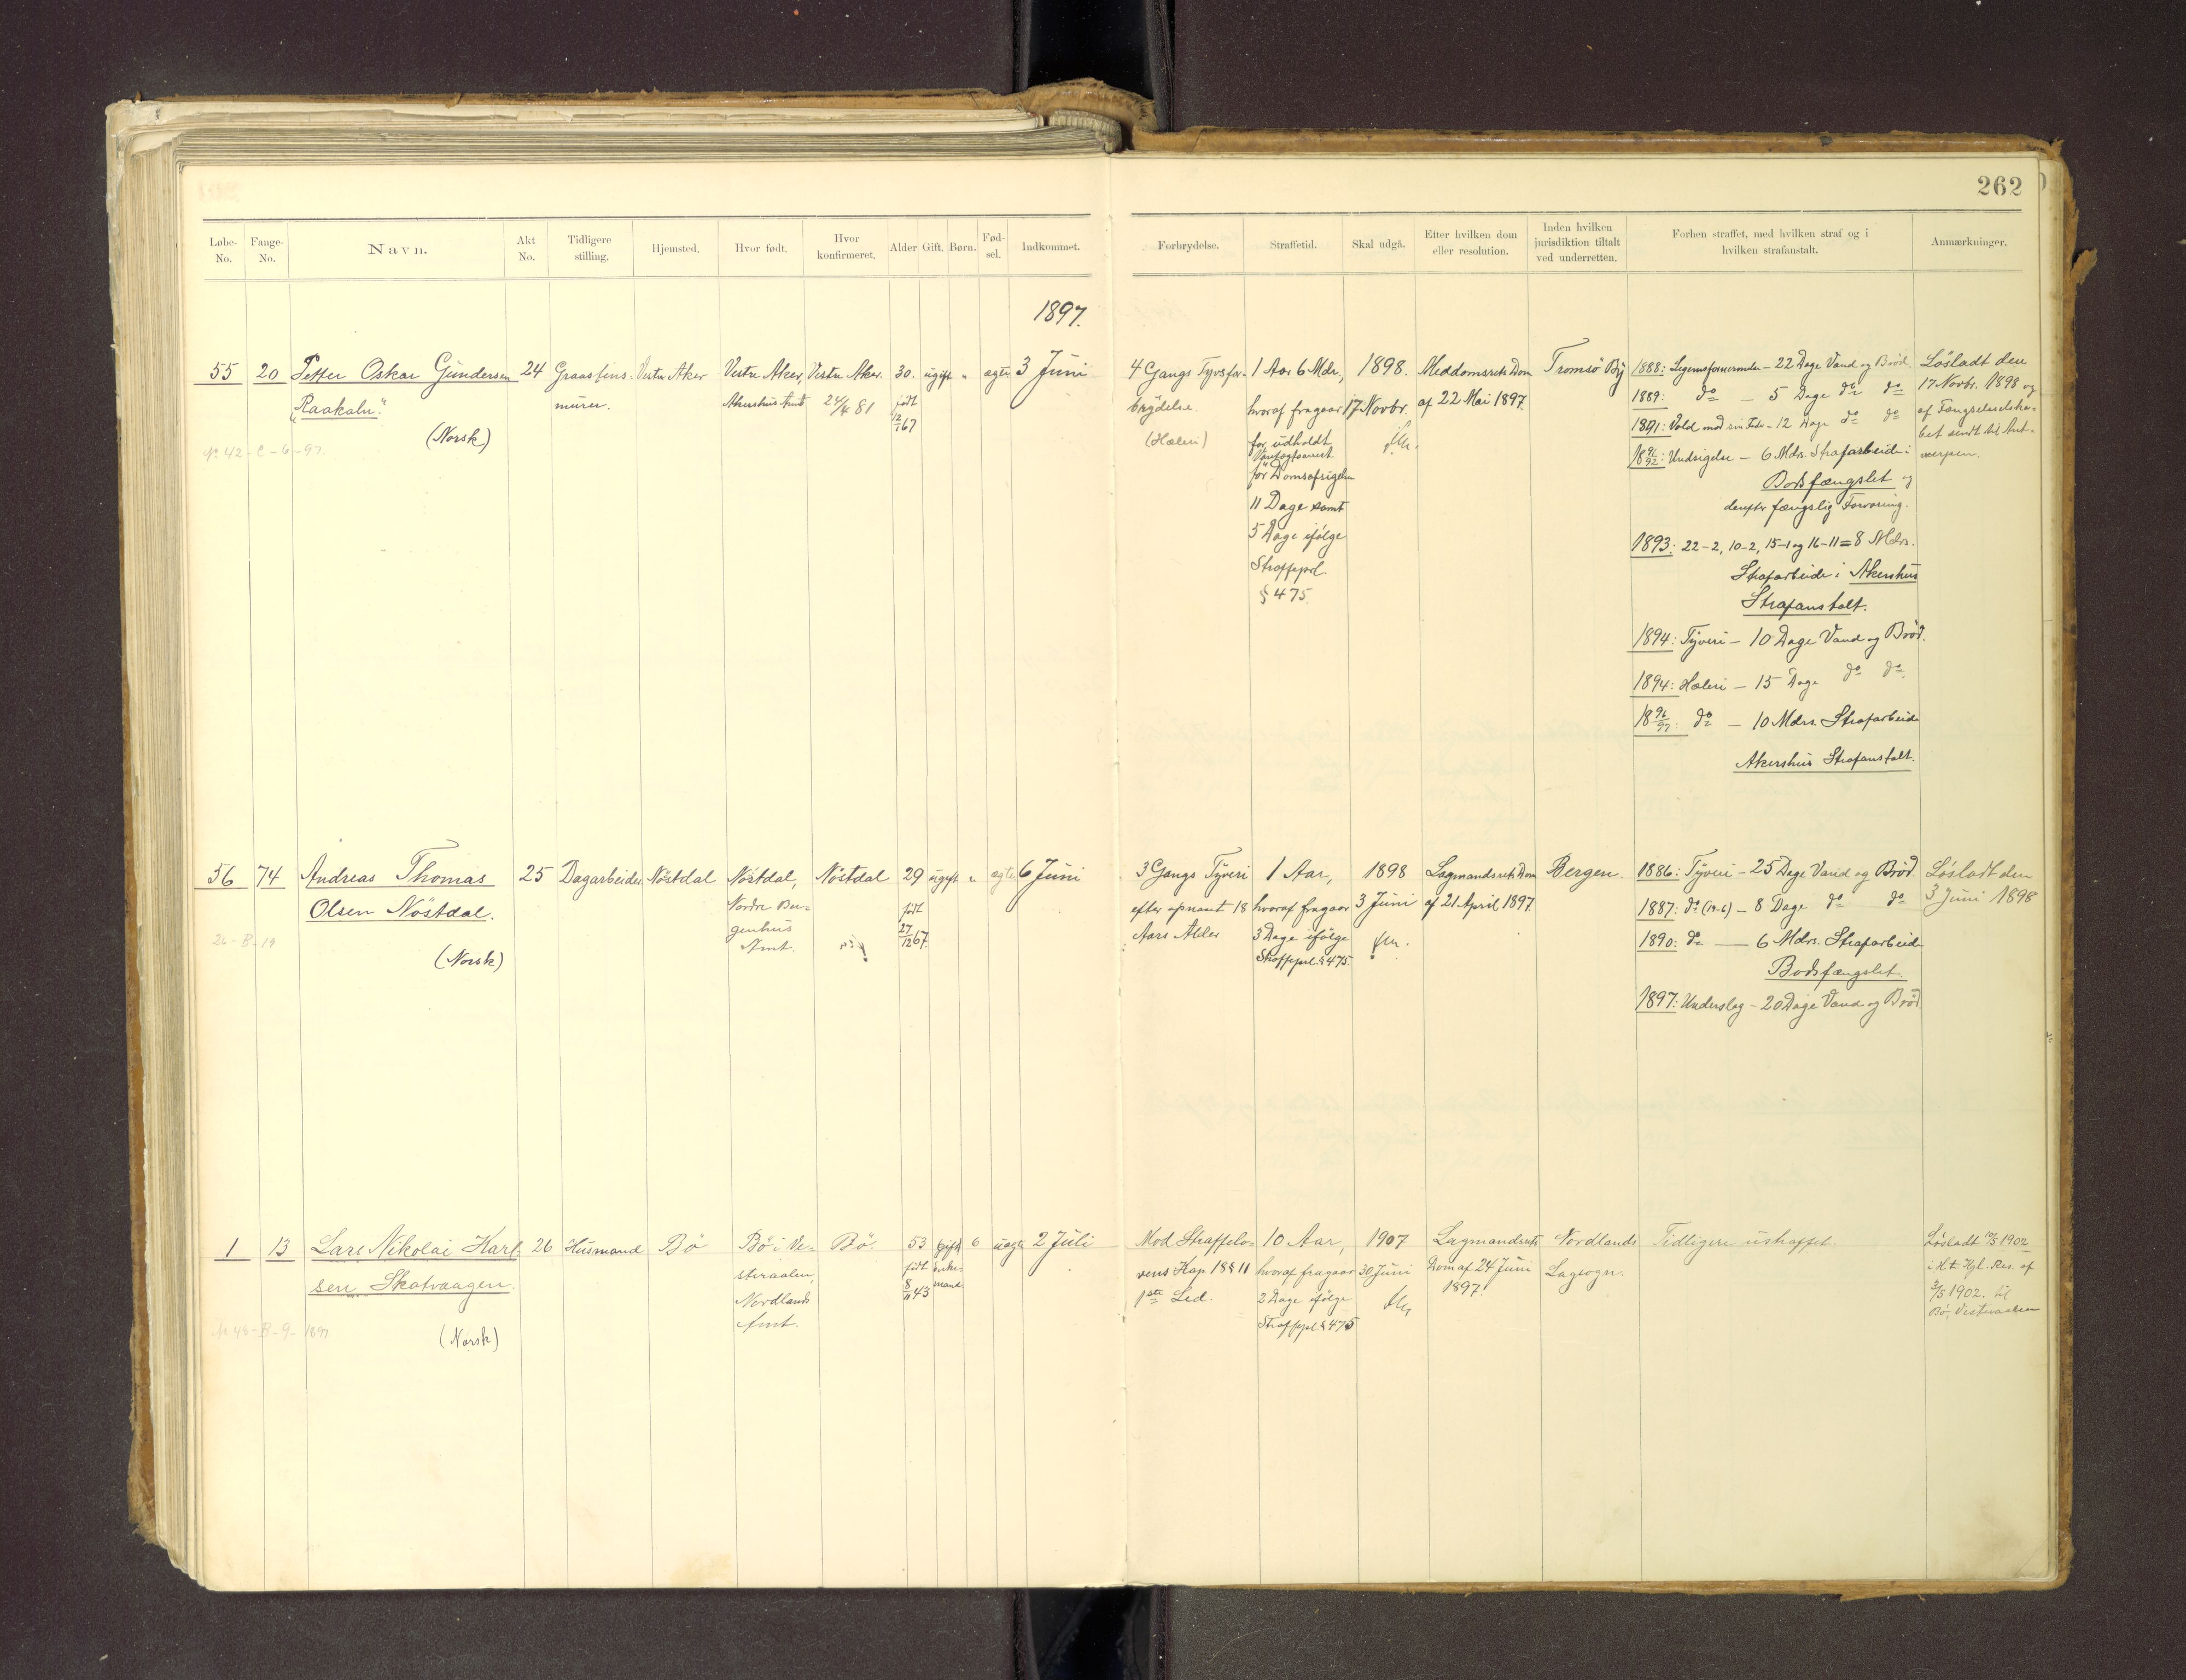 262
Løbe-No.
Fange-No.
Navn.
Akt No.
Tidligere stilling.
Hjemsted.
Hvor født.
Hvor konfirmeret.
Alder
Gift.
Børn.
Fød-sel.
Indkommet.
Forbrydelse.
Straffetid.
Skal udgå.
Efter hvilken dom eller resolution.
Inden hvilken jurisdiktion tiltalt ved underretten.
Forhen straffet, med hvilken straf og i hvilken strafanstalt.
Anmærkninger.
1897.
55
20
Petter Oskar Gundersen
"Raakalv".
(Norsk)
No 42 - C - 6 - 97.
24
Graastens-
murer.
Vestre Aker
Vestre Aker,
Akershus Amt
Vestre Aker.
24/4 81
30.
født
12/1 67
ugift
"
ægte
3 Juni
4 Gangs Tyvsfor-
brydelse.
(Hæleri)
1 Aar 6 Mdr.,
hvoraf fragaar
for udholdt
Varetægtsarrest
før Domsafsigelsen
11 Dage samt
5 Dage ifølge
Straffeprl.
§ 475.
1898.
17 Novbr.
Meddomsrets Dom
af 22 Mai 1897.
Tromsö By
1888: Legemsfornærmelse - 22 Dage Vand og Bröd.
1889: do - 5 Dage do do
1891: Vold mod sin Fader - 12 Dage do do
18 91/92: Undsigelse - 6 Mdr. Strafarbeide i
Bodsfængslet og
derefter fængslig Forvaring.
1893: 22-2, 10-2, 15-1 og 16-11 = 8 Mdrs.
Strafarbeide i Akershus
Strafanstalt.
1894: Tyveri - 10 Dage Vand og Bröd.
1894: Hæleri - 15 Dage do do.
18 96/97: do - 10 Mdrs. Strafarbeide
Akershus Strafanstalt.
Lösladt den
17 Novbr. 1898 og
af Fængselsselska-
bet sendt til Ant-
werpen.
56
74
Andreas Thomas
Olsen Nöstdal.
(Norsk)
26 - B - 19
25
Dagarbeider
Nöstdal
Nöstdal,
Nordre Ber-
genhus
Amt.
Nöstdal
29
født
27/12 67.
ugift
"
ægte
6 Juni
3 Gangs Tyveri
efter opnaaet 18
Aars Alder
1 Aar,
hvoraf fragaar
3 Dage ifølge
Straffeprl. § 475.
1898
3 Juni
Lagmandsrets Dom
af 21 April 1897.
Bergen.
1886: Tyveri - 25 Dage Vand og Bröd.
1887: do (19-6) - 8 Dage do do
1890: do - 6 Mdrs. Strafarbeide
Bodsfængslet.
1897: Underslag - 20 Dage Vand og Bröd
Lösladt den
3 Juni 1898
1
13
Lars Nikolai Karl-
sen Skatvaagen.
(Norsk)
No 48 - B - 9 - 1897
26
Husmand
Bö
Bö i Ve-
steraalen,
Nordlands
Amt.
Bö.
53
født
8/11 43
gift
Enke-
mand
6
uægte
2 Juli
Mod Straffelo-
vens Kap. 18 § 11
1ste Led.
10 Aar,
hvoraf fragaar
2 Dage ifølge
Straffeprl. § 475
1907
30 Juni
Lagmandsrets
Dom af 24 Juni
1897.
Nordlands
Lagsogn.
Tidligere ustraffet
Lösladt 10/5 1902
i H. t. Kgl. Res. af
3/5 1902. til
Bö, Vesteraalen